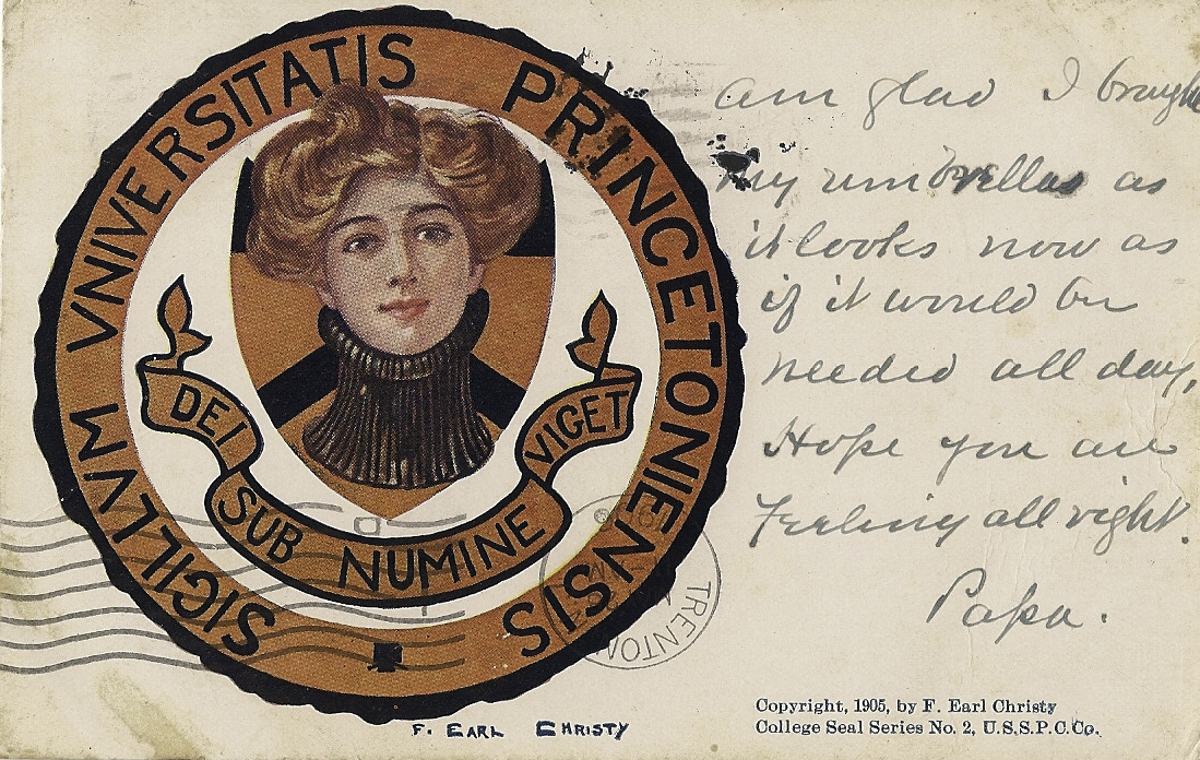 SIGILLVM VNIVERSITATIS PRINCETONENSIS
DEI SUB NUMINE VIGET
am glad I brought
my umbrella as
it looks now as
if it would be
needed all day,
Hope you are
Feeling all right.
Papa.
TRENTON
F. EARL CHRISTY
Copyright, 1905, by F. Earl Christy
College Seal Series No. 2, U.S.S.P.C.Co.